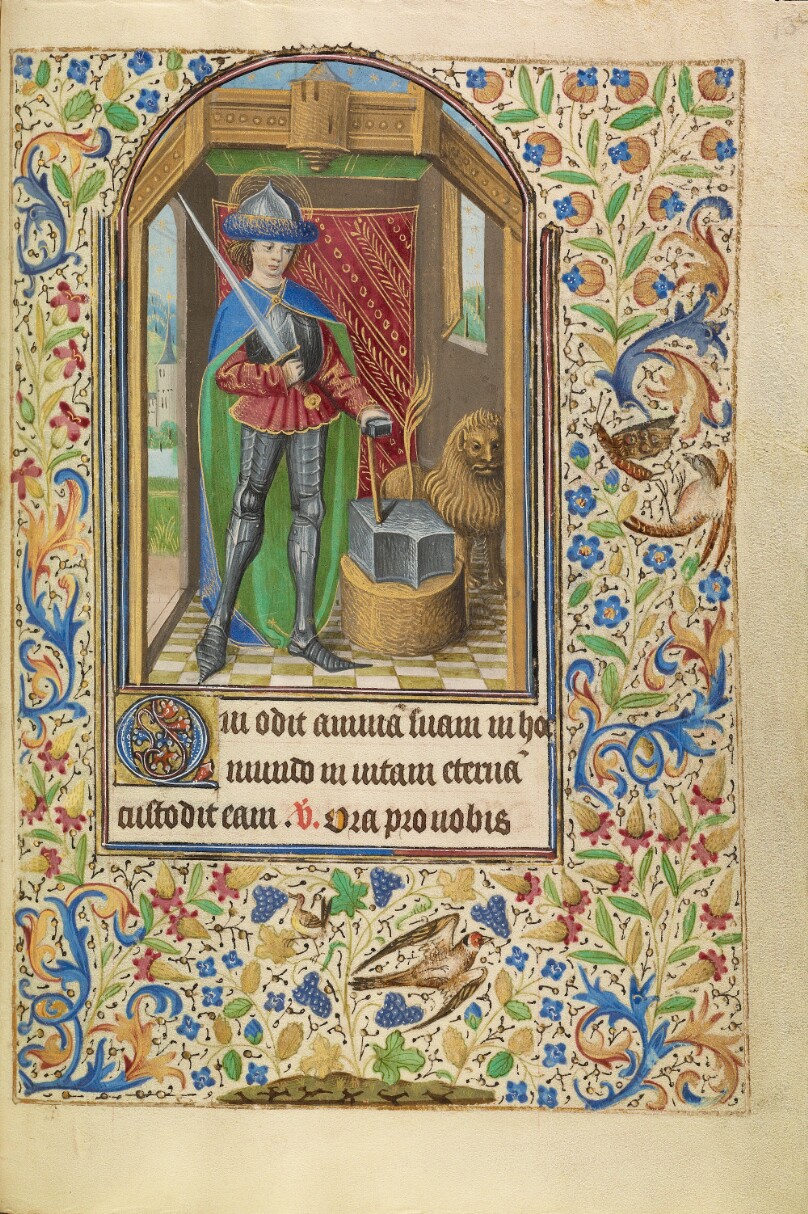 Qui odit animã suam in hoc
mundo in vitam eternã
custodit eam . ℣. Ora pro nobis